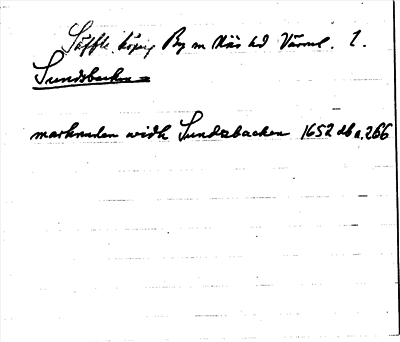 Säffle köping By m Näs hd Värml. 1.
Sundsbacken =
marknaden widh Sundzbacken 1652 db a. 266